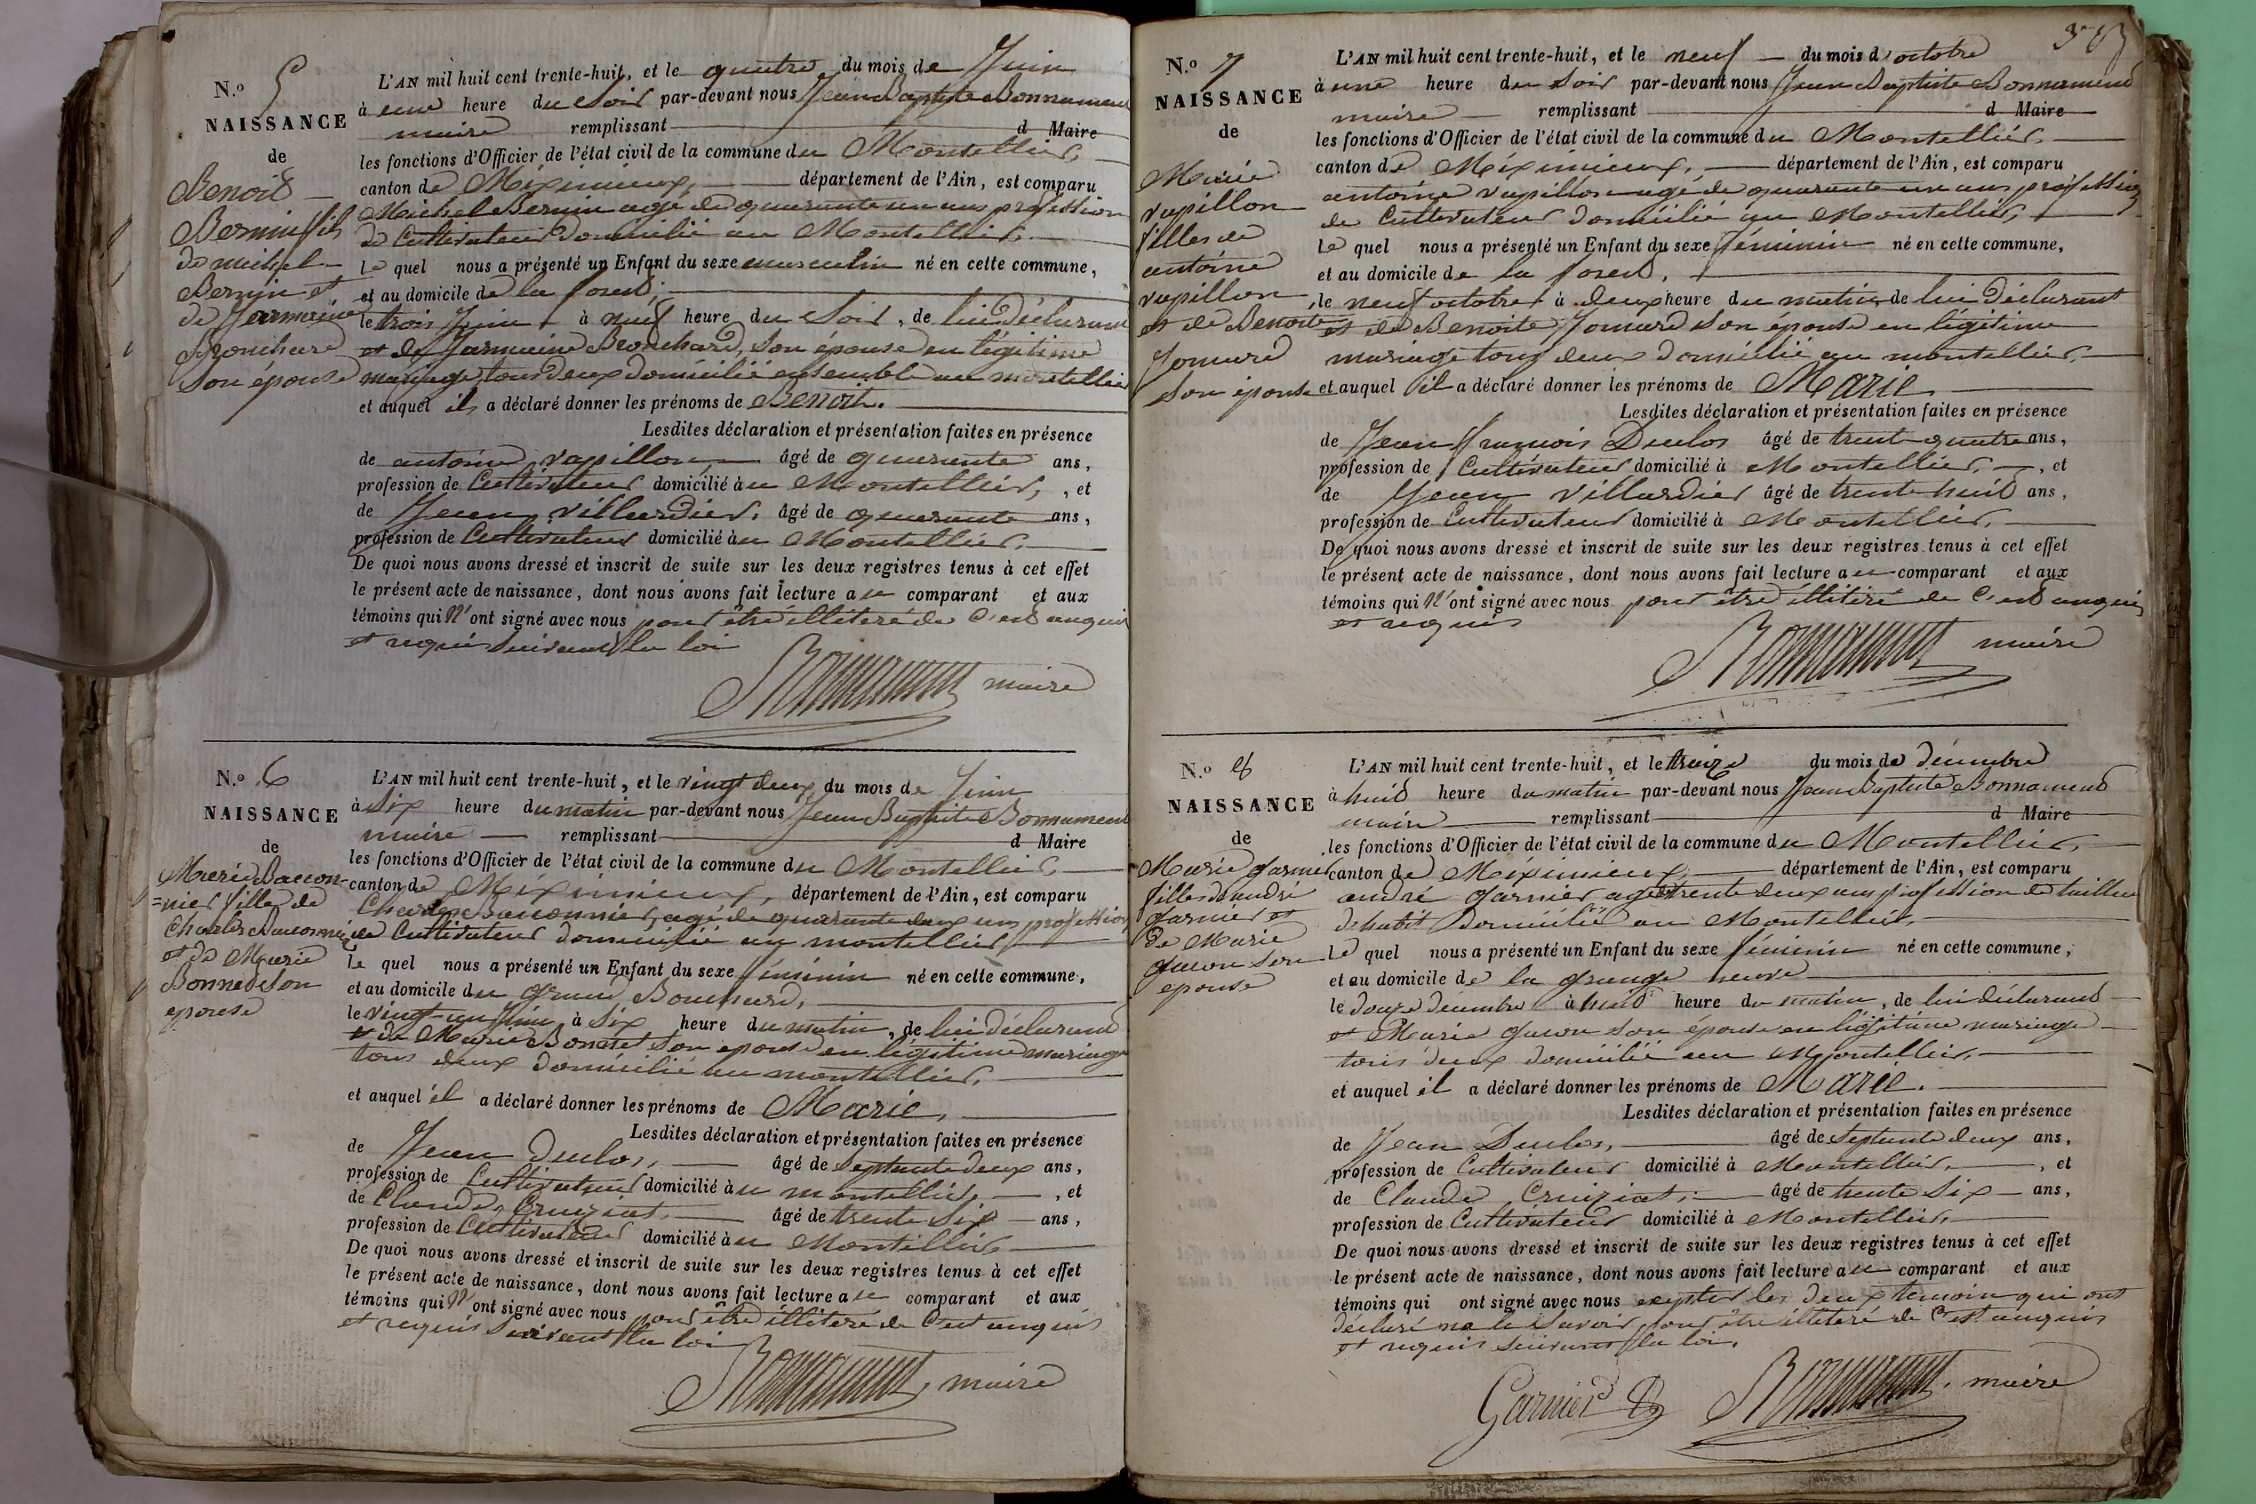 N.o 5
NAISSANCE
de
Benoit
Bernin fils
de michel
Bernin et
de Jermaine
Brouchard
son épouse
L'AN mil huit cent trente-huit, et le quatre du mois de Juin
à une heure du Soir par-devant nous Jean Baptiste Bonnamend
maire remplissant d Maire
les fonctions d'Officier de l'état civil de la commune du Montellier,
canton de Méximieux, département de l'Ain, est comparu
Michel Bernin agé de quarante un ans profession
de Cultivateur domicilié au Montellier,
Le quel nous a présenté un Enfant du sexe masculin né en cette commune,
et au domicile de la foret,
le trois Juin à neuf heure du Soir, de lui déclarant
et de Jarmaine Brouchard, son épouse en légitime
mariage, tous deux domicilié ensemble au montellier
et auquel il a déclaré donner les prénoms de Benoit.
Lesdites déclaration et présentation faites en présence
de antoine vapillon, âgé de quarante ans,
profession de Cultivateur domicilié à u Montellier, , et
de Jean villardier, âgé de quarante ans,
profession de Cultivateur domicilié à u Montellier,
De quoi nous avons dressé et inscrit de suite sur les deux registres tenus à cet effet
le présent acte de naissance, dont nous avons fait lecture a u comparant et aux
témoins qui N'ont signé avec nous pour être illiteré de c'est enquis
et requis suivant la loi
Bonnamend maire
N.o 6
NAISSANCE
de
Marie Baccon-
=nier fille de
Charles Bacconnier
et de Marie
Bonnet Son
epouse
L'AN mil huit cent trente-huit, et le vingt deux du mois de Juin
à Six heure du matin par-devant nous Jean Baptiste Bonnamend
maire remplissant d Maire
les fonctions d'Officier de l'état civil de la commune du Montellier,
canton de Méximieux, département de l'Ain, est comparu
Charles Bacconnier, agé de quarante deux ans profession
de Cultivateur domicilié au montellier
Le quel nous a présenté un Enfant du sexe féminin né en cette commune,
et au domicile du grand Bouchard,
le vingt-un Juin à Six heure du matin, de lui déclarand
et de Marie Bonnet Son epouse en légitime mariage
tous deux domicilié au montellier,
et auquel il a déclaré donner les prénoms de Marie,
Lesdites déclaration et présentation faites en présence
de Jean Duclos, âgé de Septante deux ans,
profession de Cultivateur domicilié à u montellier, , et
de Claude Cruiziat, âgé de trente Six ans,
profession de Cultivateur domicilié à u Montellier
De quoi nous avons dressé et inscrit de suite sur les deux registres tenus à cet effet
le présent acte de naissance, dont nous avons fait lecture a u comparant et aux
témoins qui N'ont signé avec nous pour être illiteré de c'est enquis
et requis suivant la loi
Bonnamend, maire
N.o 7
NAISSANCE
de
Marie
vapillon
filles de
antoine
vapillon
et de Benoite
Jomard
son épouse
L'AN mil huit cent trente-huit, et le neuf du mois d'octobre
à une heure du Soir par-devant nous Jean Baptiste Bonnamend
maire remplissant d Maire
les fonctions d'Officier de l'état civil de la commune du Montellier,
canton de Méximieux, département de l'Ain, est comparu
antoine vapillon agé de quarante un ans profession
de Cultivateur domicilié au Montellier,
Le quel nous a présenté un Enfant du sexe féminin né en cette commune,
et au domicile de la foret,
le neuf octobre à deux heure du matin, de lui déclarant
et de Benoite Jomard son épouse en légitime
mariage tous deux domicilié au montellier,
et auquel il a déclaré donner les prénoms de Marie
Lesdites déclaration et présentation faites en présence
de Jean françois Duclos âgé de trent quatre ans,
profession de Cultivateur domicilié à Montellier, , et
de Jean villardier âgé de trente huit ans,
profession de Cultivateur domicilié à Montellier,
De quoi nous avons dressé et inscrit de suite sur les deux registres tenus à cet effet
le présent acte de naissance, dont nous avons fait lecture a u comparant et aux
témoins qui N'ont signé avec nous pour être illiteré de c'est enquis
et requis
Bonnamend maire
N.o 8
NAISSANCE
de
Marie garnier
filles d'andré
garnier et
de Marie
son
epouse
L'AN mil huit cent trente-huit, et le treize du mois de décembre
à huit heure du matin par-devant nous Jean Baptiste Bonnamend
maire remplissant d Maire
les fonctions d'Officier de l'état civil de la commune du Montellier,
canton de Méximieux, département de l'Ain, est comparu
andré garnier agé trente deux ans profession de tailleur
dehabit domicilié au Montellier,
Le quel nous a présenté un Enfant du sexe féminin né en cette commune,
et au domicile de la grange neuve
le douze decembre à huit heure du matin, de lui déclarand
et Marie son épouse en légitime mariage
tous deux domicilié au Montellier,
et auquel il a déclaré donner les prénoms de Marie.
Lesdites déclaration et présentation faites en présence
de Jean Duclos, âgé de Septante deux ans,
profession de Cultivateur domicilié à Montellier, , et
de Claude Cruiziat, âgé de trente Six ans,
profession de Cultivateur domicilié à Montellier,
De quoi nous avons dressé et inscrit de suite sur les deux registres tenus à cet effet
le présent acte de naissance, dont nous avons fait lecture a u comparant et aux
témoins qui ont signé avec nous exepter les deux temoin qui ont
déclaré ne le Savoir pour être illiteré de c'est enquis
et requis suivant la loi,
Garnier Bonnamend, maire